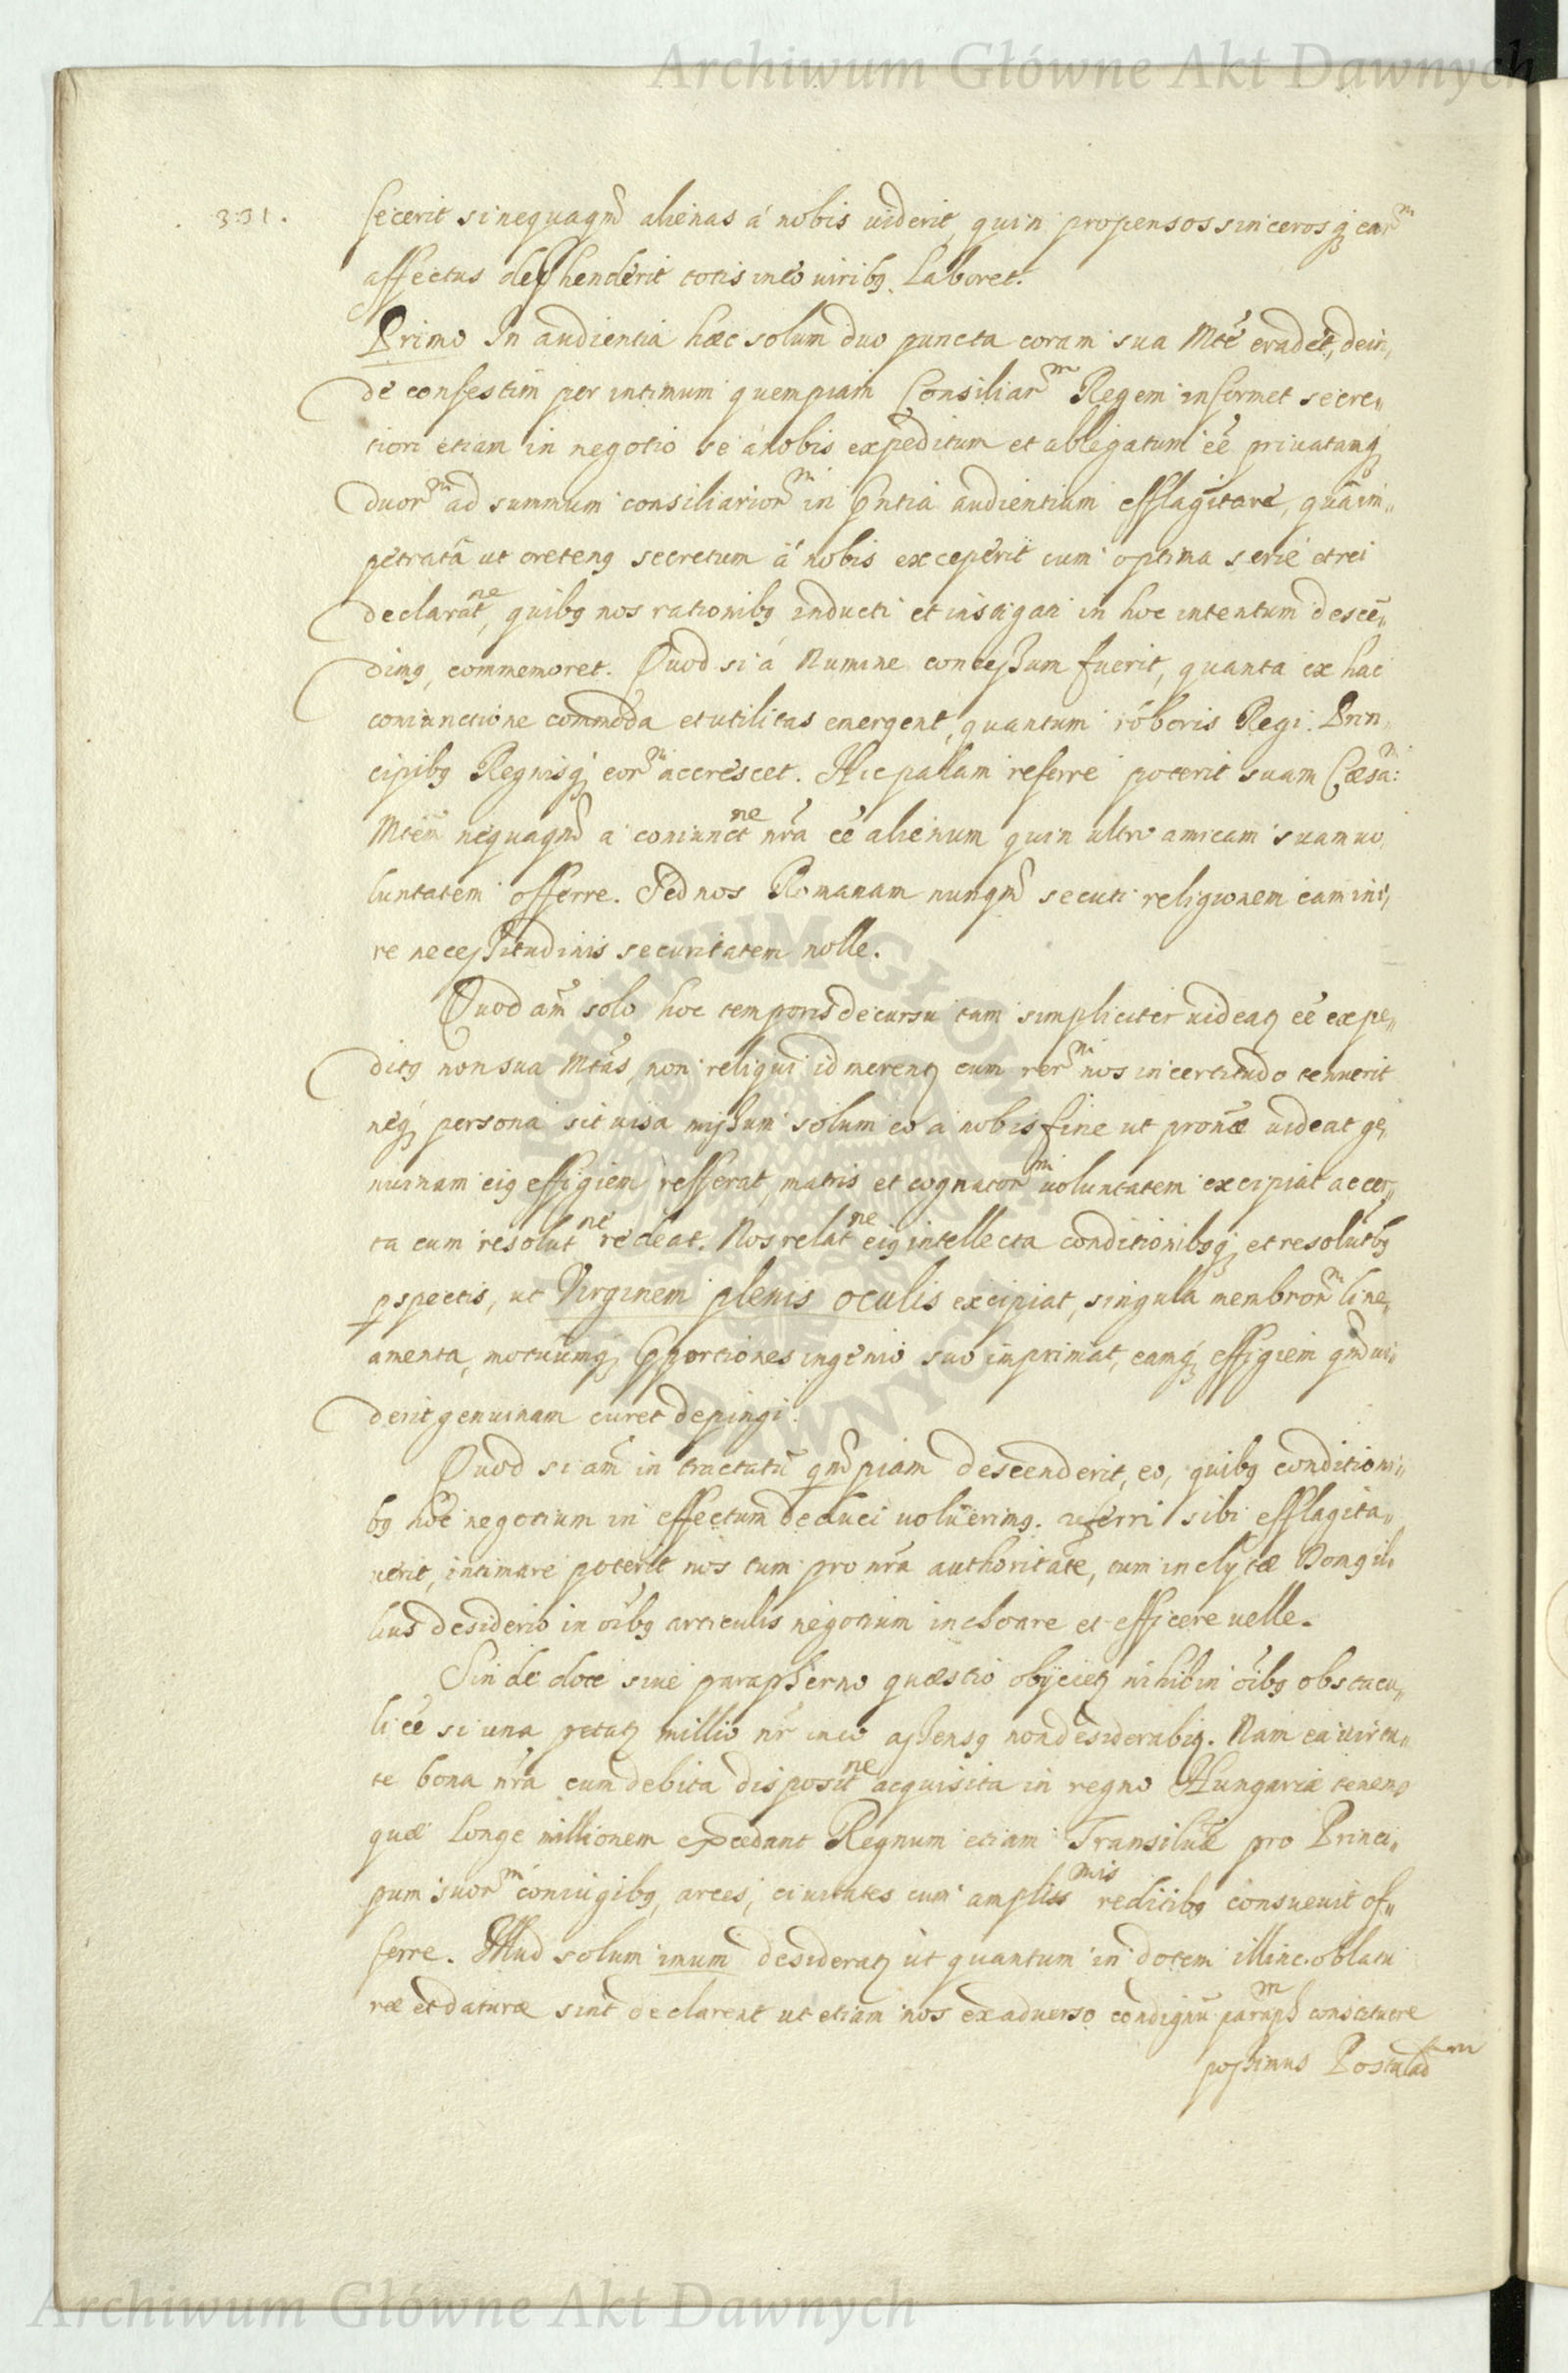 Archiwum Główne Akt Dawnych
331.
fecerit si nequaqm̃ alienas á nobis uiderit, quin propensos sincerosq́ ear^m
affectus dephenderit totis in eo uiribꝫ Laboret.
Primo In audientia hæc solum duo puncta coram sua Mtẽ eradet, dein„
de confestim per intimum quempiam Consiliar^m Regem informet secre„
tiori etiam in negotio se á nobis expeditum et ablegatum eẽ priuatamq́
duor^m ad summum consiliarior^m in pntia audientiam efflagitare, quã im„
petratã ut oretenꝫ secretum á nobis exceperit cum optima serie et rei
declarat^ne, quibꝫ nos rationibꝫ inducti et instigati in hoc intentum descẽ„
dimꝫ, commemoret. Quod si á Numine concessum fuerit, quanta ex hac
coniunctione commoda et utilitas emergent, quantum roboris Regi Prin„
cipibꝫ Regnisq́ eor^m accrescet. Hic palam referre poterit suam Cæsa^m:
Mtem̃ nequaqm̃ a coniunct^ne nrã eẽ alienum quin ultro amicam suam uo„
luntatem offerre. Sed nos Romanam nunqm̃ secuti religionem eam ini„
re necessitudinis securitatem nolle.
Quod am̃ solo hoc temporis decursu tam simpliciter uideatꝫ eẽ expe„
ditꝫ non sua Mtãs, non reliqui id merentꝫ cum rer^m nos incertitudo tenuerit
neq́ persona sit uisa missum solum eo a nobis fine ut pronũ uideat ge„
nuinam eiꝫ effigiem refferat, matris et cognator^m uoluntatem excipiat ac cer„
ta cum resolut^ne redeat. Nos relat^ne eiꝫ intellecta conditionibꝫq́ et resolutbꝫ
pspectis, ut Virginem plenis oculis excipiat, singula membror^m line„
amenta, motuumq́ pportiones ingenio suo imprimat, eamq́ effigiem qm̃ ui„
derit genuinam curet depingi.
Quod si am̃ in tractatũ qm̃piam descenderit, eo, quibꝫ conditioni„
bꝫ hoc negotium in effectum deduci uoluerimꝫ. referri sibi efflagita„
uerit, intimare poterit nos tum pro nrã authoritate, tum inclytæ Domꝫ il„
lius desiderio in oĩbꝫ articulis negotium inchoare et efficere uelle.
Sin de dote siue parapherno quæstio obijcietꝫ nihil in oĩbꝫ obstacu„
li eẽ si una petatꝫ millio nr̃ in eo assensꝫ non desiderabitꝫ. Nam ea uirtu„
te bona nrã cum debita disposit^ne acquisita in regno Hungariæ tenemꝫ
quæ longe millionem excedant Regnum etiam Transiluæ pro Princi„
pum suor^m coniugibꝫ, arces, ciuitates cum ampliss^mis reditibꝫ consueuit of„
ferre. Illud solum imum desideratꝫ ut quantum in dotem illinc oblatu
ræ et daturæ sint declarent ut etiam nos ex aduerso condignũ paraph^m constituere
possimus Postulad^um
Archiwum Główne Akt Dawnych